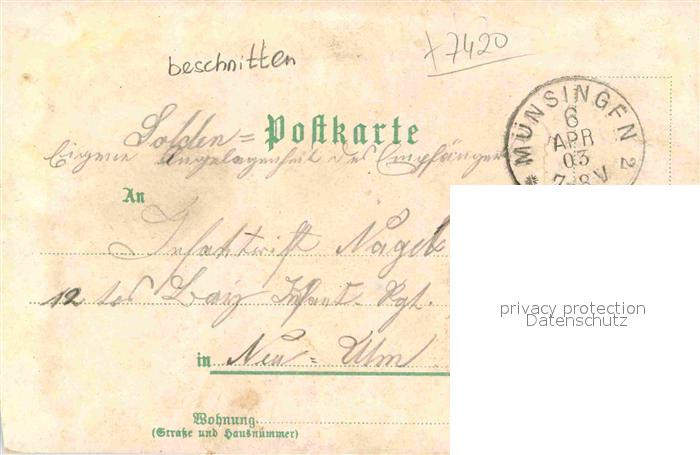 beschnitten
+7420
MÜNSINGEN 2
6
APR
03
7-8V
Solden= Postkarte
Eigene Angelegenheit des Empfängers
An
Infantrist Nagel
12 tes Baÿ Infant. Rgt.
in Neu=Ulm
Wohnung
(Straße und Hausnummer)
privacy protection
Datenschutz